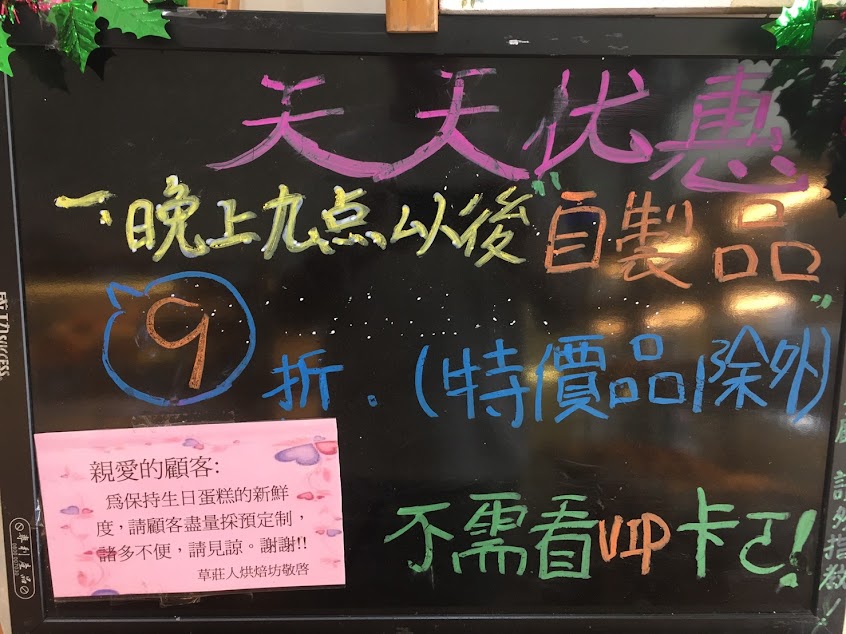 天天优惠
一、晚上九点以後"自製品"
9折.(特價品除外)
不需看VIP卡!
親愛的顧客:
為保持生日蛋糕的新鮮
度，請顧客盡量採預定制，
諸多不便，請見諒。謝謝!!
草莊人烘焙坊敬啓
SUCCESS
專利產品
請
指教!